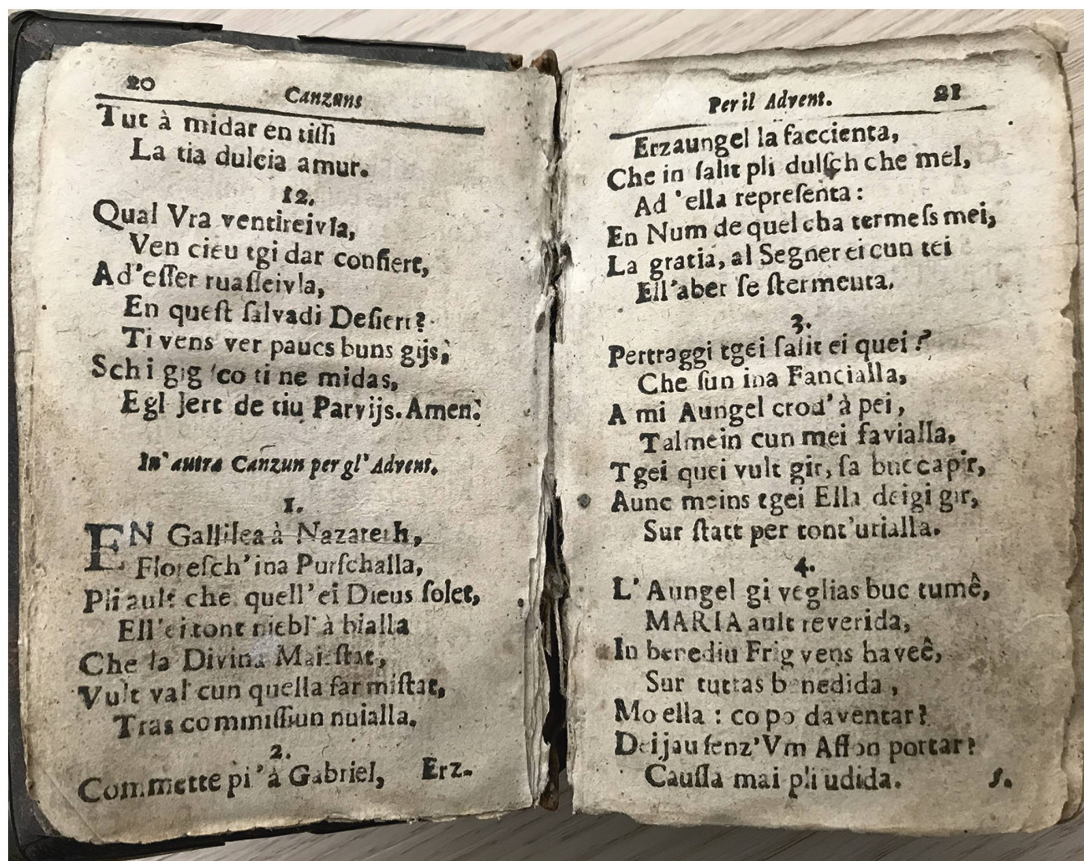 20 Canzuns
Tut à midar en tissi
La tia dulcia amur.
12.
Qual Vra ventireivla,
Ven cieu tgi dar confiert,
Ad'esser ruasseivla,
En quest salvadi Desiert?
Ti vens ver paucs buns gijs,
Schi gig 'co ti ne midas,
Egl Jert de tiu Parvijs. Amen.
In'autra Canzun per gl'Advent.
1.
EN Gallilea à Nazareth,
Floresch'ina Purschalla,
Pli ault che quell'ei Dieus solet,
Ell'ei tont niebl'à bialla
Che la Divina Maiestat,
Vult val cun quella far mistat,
Tras commissiun nuialla.
2.
Commette pi'à Gabriel,
Erz-
Per il Advent. 21
Erzaungel la faccienta,
Che in salit pli dulsch che mel,
Ad'ella representa:
En Num de quel cha termess mei,
La gratia, al Segner ei cun tei
Ell'aber se stermenta.
3.
Pertraggi tgei salit ei quei?
Che sun ina Fancialla,
A mi Aungel crod'à pei,
Talmein cun mei favialla,
Tgei quei vult gir, sa buc capir,
Aunc meins tgei Ella deigi gir,
Sur statt per tont'urialla.
4.
L'Aungel gi veglias buc tumê,
MARIA ault reverida,
In benediu Frig vens haveê,
Sur tuttas benedida,
Mo ella: co po daventar?
Deijau senz'Vm Affon portar?
Caussa mai pli udida.
5.